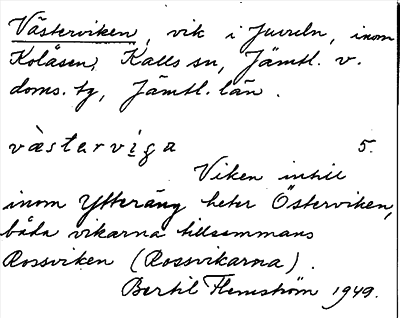 Västerviken, vik i Juveln, inom
Kolåsen, Kalls sn, Jämtl. v.
doms. tg, Jämtl. län.
vàstervìga 5.
Viken intill
inom Ytteräng heter Österviken,
båda vikarna tillsammans
Rossviken (Rossvikarna).
Bertil Flemström 1949.